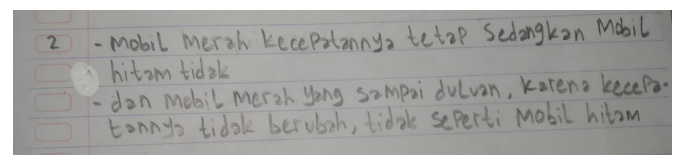 2 - Mobil merah kecepatannya tetap sedangkan Mobil
hitam tidak
- dan Mobil Merah yang sampai duluan, karena kecepa-
tannya tidak berubah, tidak seperti Mobil hitam